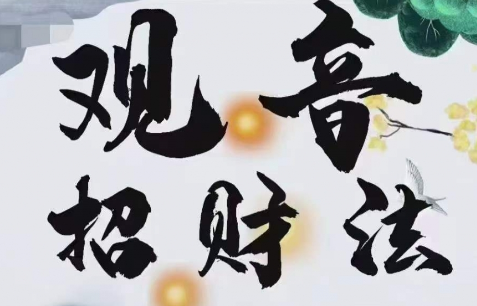 观音
招财法